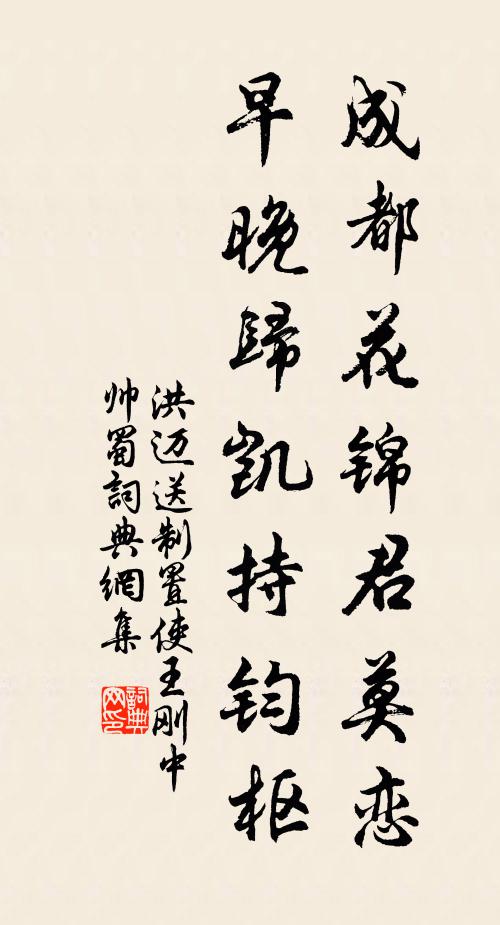 成都花锦君莫恋
早晚歸凯持钧枢
洪迈送制置使王刚中
帅蜀詞典網集
詞典网印